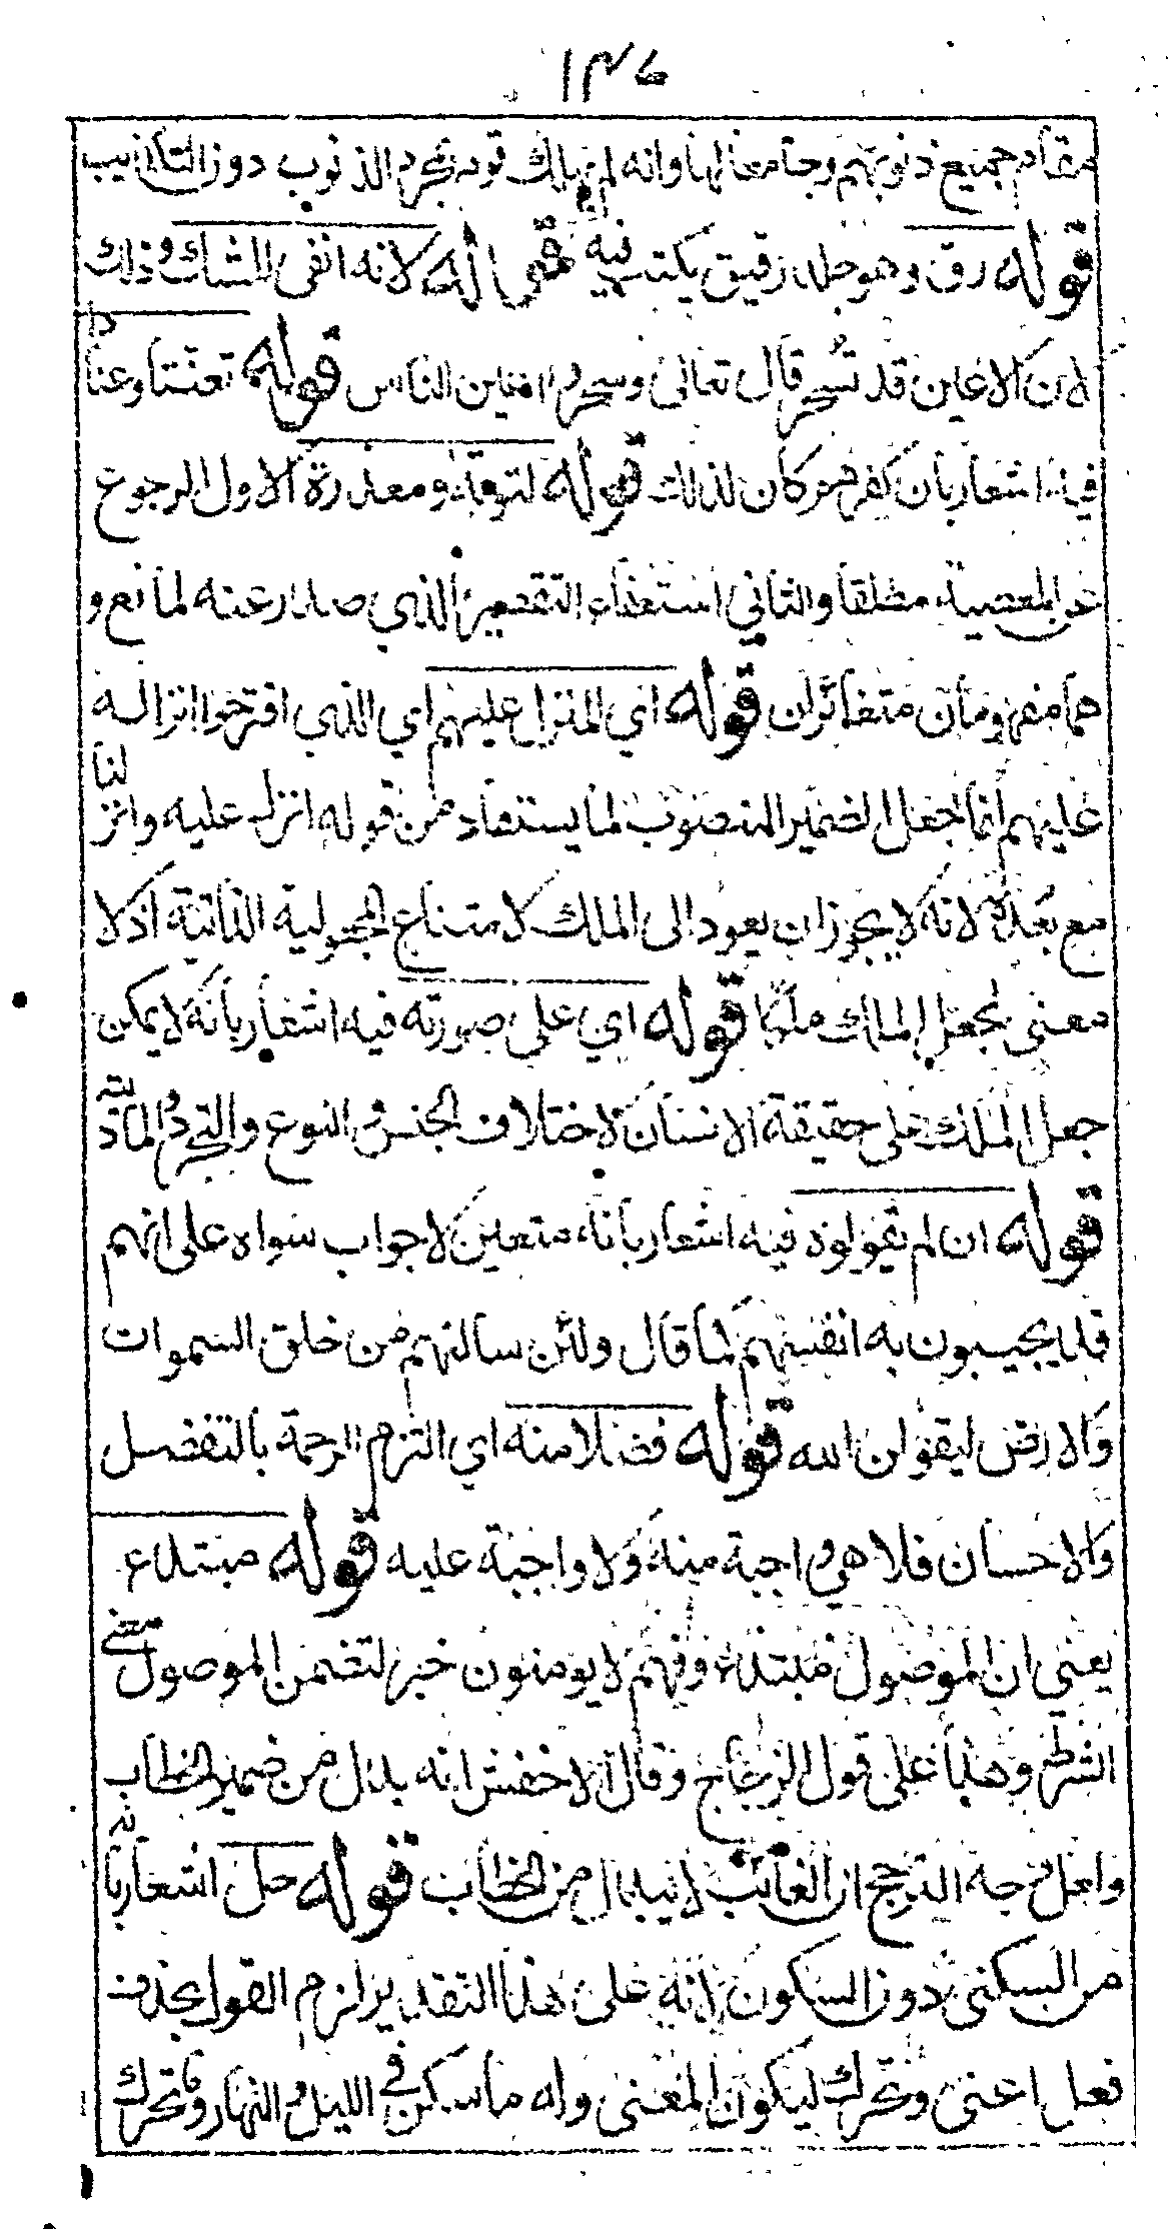 ١٣٦
مقام جميع ذنوبهم وجامعا لها وانه لم يهلك قوم بمجرد الذنوب دون التكذيب
قوله رق وهو جلد رقيق يكتب فيه قوله لانه انفى للشك وذلك
لان الاعين قد تسحر قال تعالى وسحروا اعين الناس قوله تعنتا وعنادا
فيه اشعار بان كفرهم كان لذلك قوله لتوبة ومعذرة الاول الرجوع
عن المعصية مطلقا والثاني استعفاء التقصير الذي صدر عنه لمانع و
هما مفهومان متغائران قوله اي المنزل عليهم اي الذي اقترحوا انزاله
عليهم انما جعل الضمير المنصوب لما يستفاد من قوله انزل عليه وانزلنا
مع بعده لانه لا يجوز ان يعود الى الملك لامتناع المجعولية الذاتية اذ لا
معنى لجعل الملك ملكا قوله اي على صورته فيه اشعار بانه لا يمكن
جعل الملك على حقيقة الانسان لاختلاف الجنس والنوع والتجرد والمادية
قوله ان لم يقولوه فيه اشعار بانه متعين لا جواب سواه على انهم
قد يجيبون به انفسهم لما قال ولئن سالتهم من خلق السموات
والارض ليقولن الله قوله فضلا منه اي التزم الرحمة بالتفضل
والاحسان فلا هي واجبة منه ولا واجبة عليه قوله مبتداء
يعني ان الموصول مبتداء وفهم لا يومنون خبر لتضمن الموصول معنى
الشرط وهذا على قول الزجاج وقال الاخفش انه بدل من ضمير الخطاب
ولعل وجه الترجيح ان الغائب لا يبدل من الخطاب قوله حل اشعار بانه
من السكنى دون السكون لانه على هذا التقدير لزم القول بحذف
فعل اعنى وتحرك ليكون المعنى وله ما سكن في الليل والنهار وما تحرك